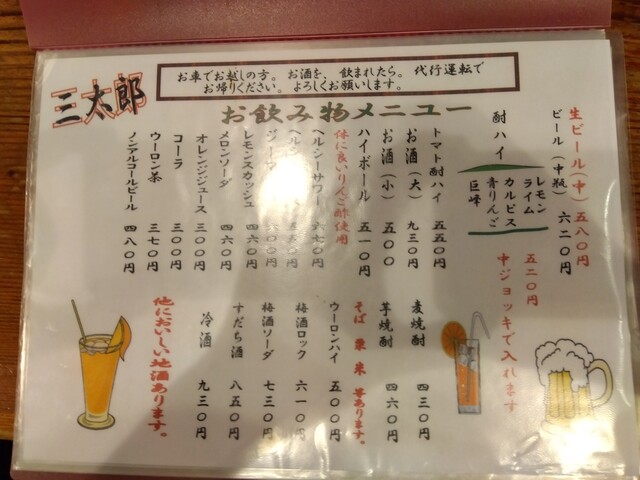 三太郎
お車でお越しの方。お酒を、飲まれたら。代行運転で
お帰りください。よろしくお願いします。
お飲み物メニュー
生ビール(中) 五八〇円
ビール(中瓶) 六二〇円
酎ハイ
レモン
ライム
カルピス
青りんご
巨峰
五二〇円
中ジョッキで入れます
トマト酎ハイ 五五〇円
お酒(大) 九三〇円
お酒(小) 五〇〇
ハイボール 五一〇円
体に良いりんご酢使用
ヘルシーサワー 六七〇円
レモンスカッシュ 四六〇円
メロンソーダ 四六〇円
オレンジジュース 三〇〇円
コーラ 三〇〇円
ウーロン茶 三七〇円
ノンアルコールビール 四八〇円
麦焼酎 四三〇円
芋焼酎 四六〇円
そば 栗 米 等あります。
ウーロンハイ 五〇〇円
梅酒ロック 六一〇円
梅酒ソーダ 七三〇円
すだち酒 八五〇円
冷酒 九三〇円
他においしい地酒あります。